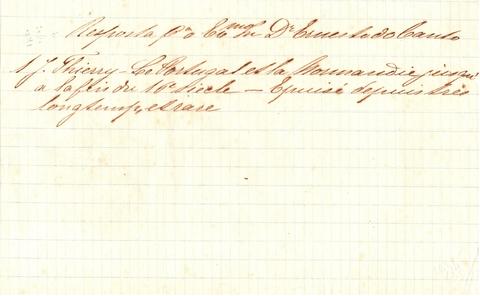 Resposta pª o Exmº Sr Dr Ernesto do Canto
1 J. Thierry - Le Portugal et la Normandie jusqu'
a la fin du 16e siècle - Epuisé depuis très
longtemps, et rare